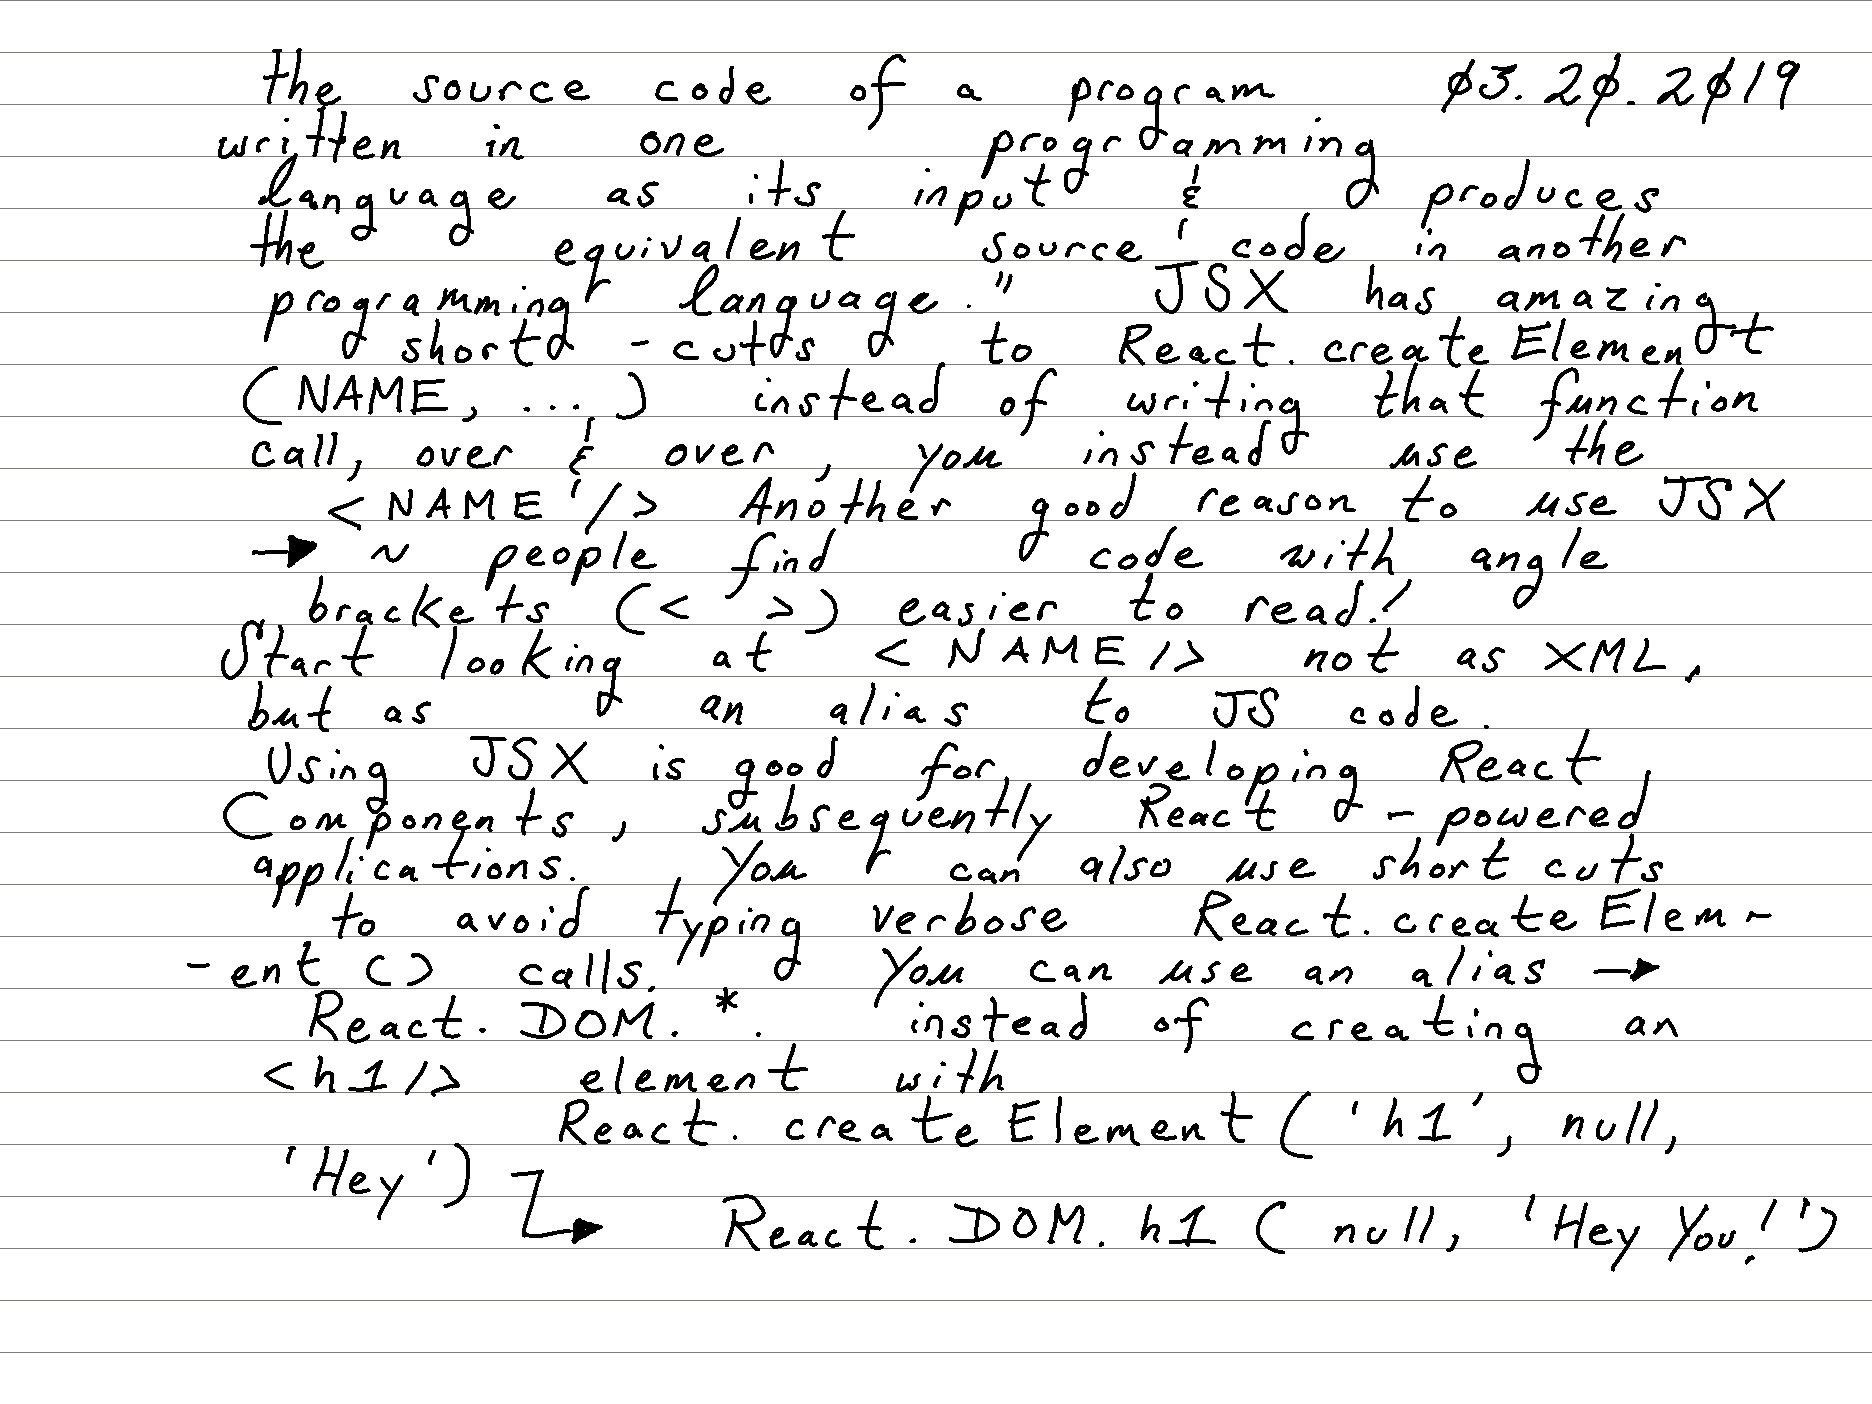 the source code of a program 03.20.2019
written in one programming
language as its input & produces
the equivalent source code in another
programming language." JSX has amazing
short-cuts to React.createElement
(NAME, ...) instead of writing that function
call, over & over, you instead use the
<NAME /> Another good reason to use JSX
→ ~ people find code with angle
brackets (< >) easier to read!
Start looking at <NAME/> not as XML,
but as an alias to JS code.
Using JSX is good for developing React
Components, subsequently React-powered
applications. You can also use short cuts
to avoid typing verbose React.createElem-
-ent () calls. You can use an alias →
React.DOM.*. instead of creating an
<h1/> element with
React.createElement('h1', null,
'Hey')
→ React.DOM.h1(null, 'Hey You!')